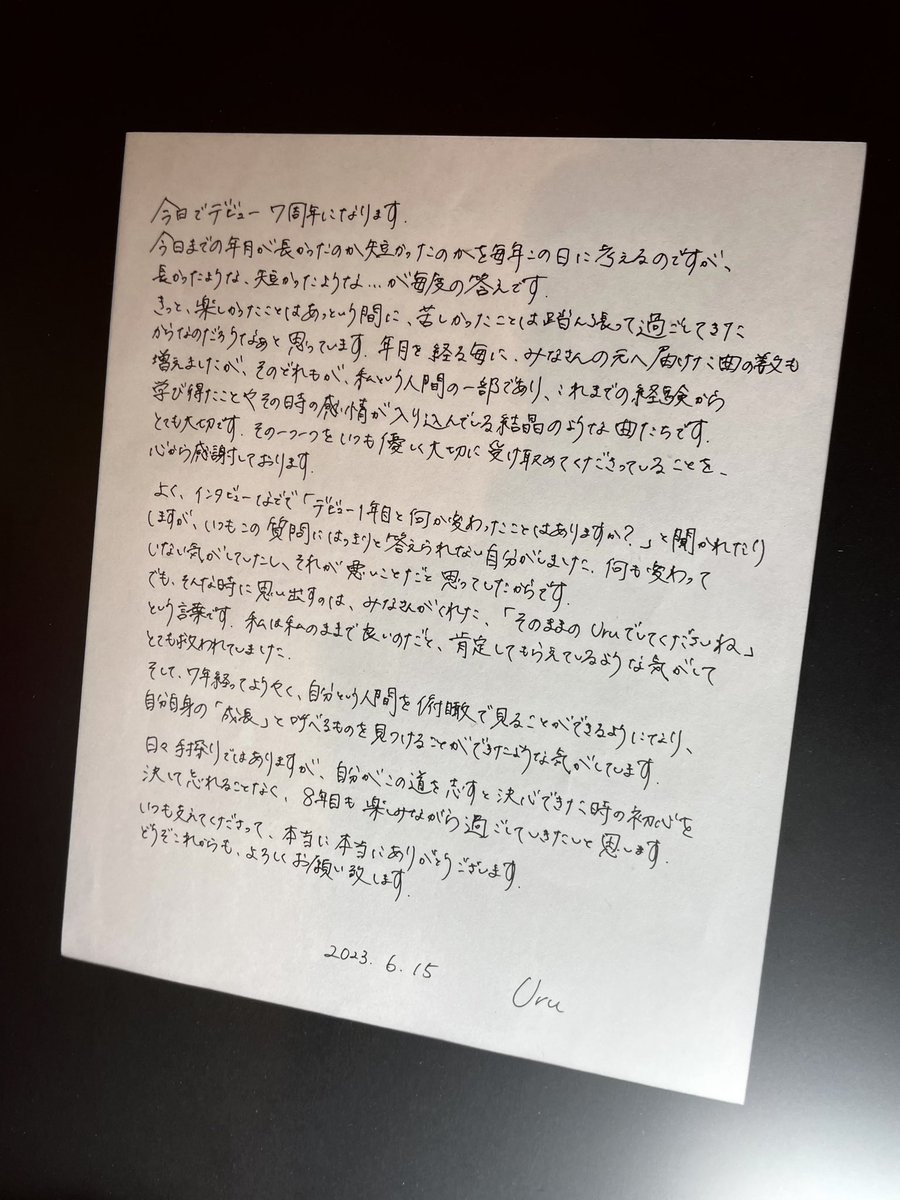 今日でデビュー7周年になります.
今日までの年月が長かったのか短かったのかを毎年この日に考えるのですが、
長かったような、短かったような…が毎度の答えです.
きっと、楽しかったことはあっという間に、苦しかったことは踏ん張って過ごしてきた
からなのだろうなぁと思っています. 年月を経る毎に、みなさんの元へ届けた曲の数も
増えましたが、そのどれもが、私という人間の一部であり、これまでの経験から
学び得たことやその時の感情が入り込んでいる結晶のような曲たちです.
とても大切です. その一つ一つをいつも優しく大切に受け取めてくださっていることを、
心から感謝しております.
よく、インタビューなどで「デビュー1年目と何か変わったことはありますか?」と聞かれたり
しますが、いつもこの質問にはっきりと答えられない自分がいました. 何も変わって
いない気がしていたし、それが悪いことだと思っていたからです.
でも、そんな時に思い出すのは、みなさんがくれた、「そのままのUruでいてくださいね」
という言葉です. 私は私のままで良いのだと、肯定してもらえているような気がして
とても救われていました.
そして、7年経ってようやく、自分という人間を俯瞰で見ることができるようになり、
自分自身の「成長」と呼べるものを見つけることができたような気がしています.
日々手探りではありますが、自分がこの道を志すと決心できた時の初心を
決して忘れることなく、8年目も楽しみながら過ごしていきたいと思います.
いつも支えてくださって、本当に本当にありがとうございます.
どうぞこれからも、よろしくお願い致します.
2023. 6. 15
Uru